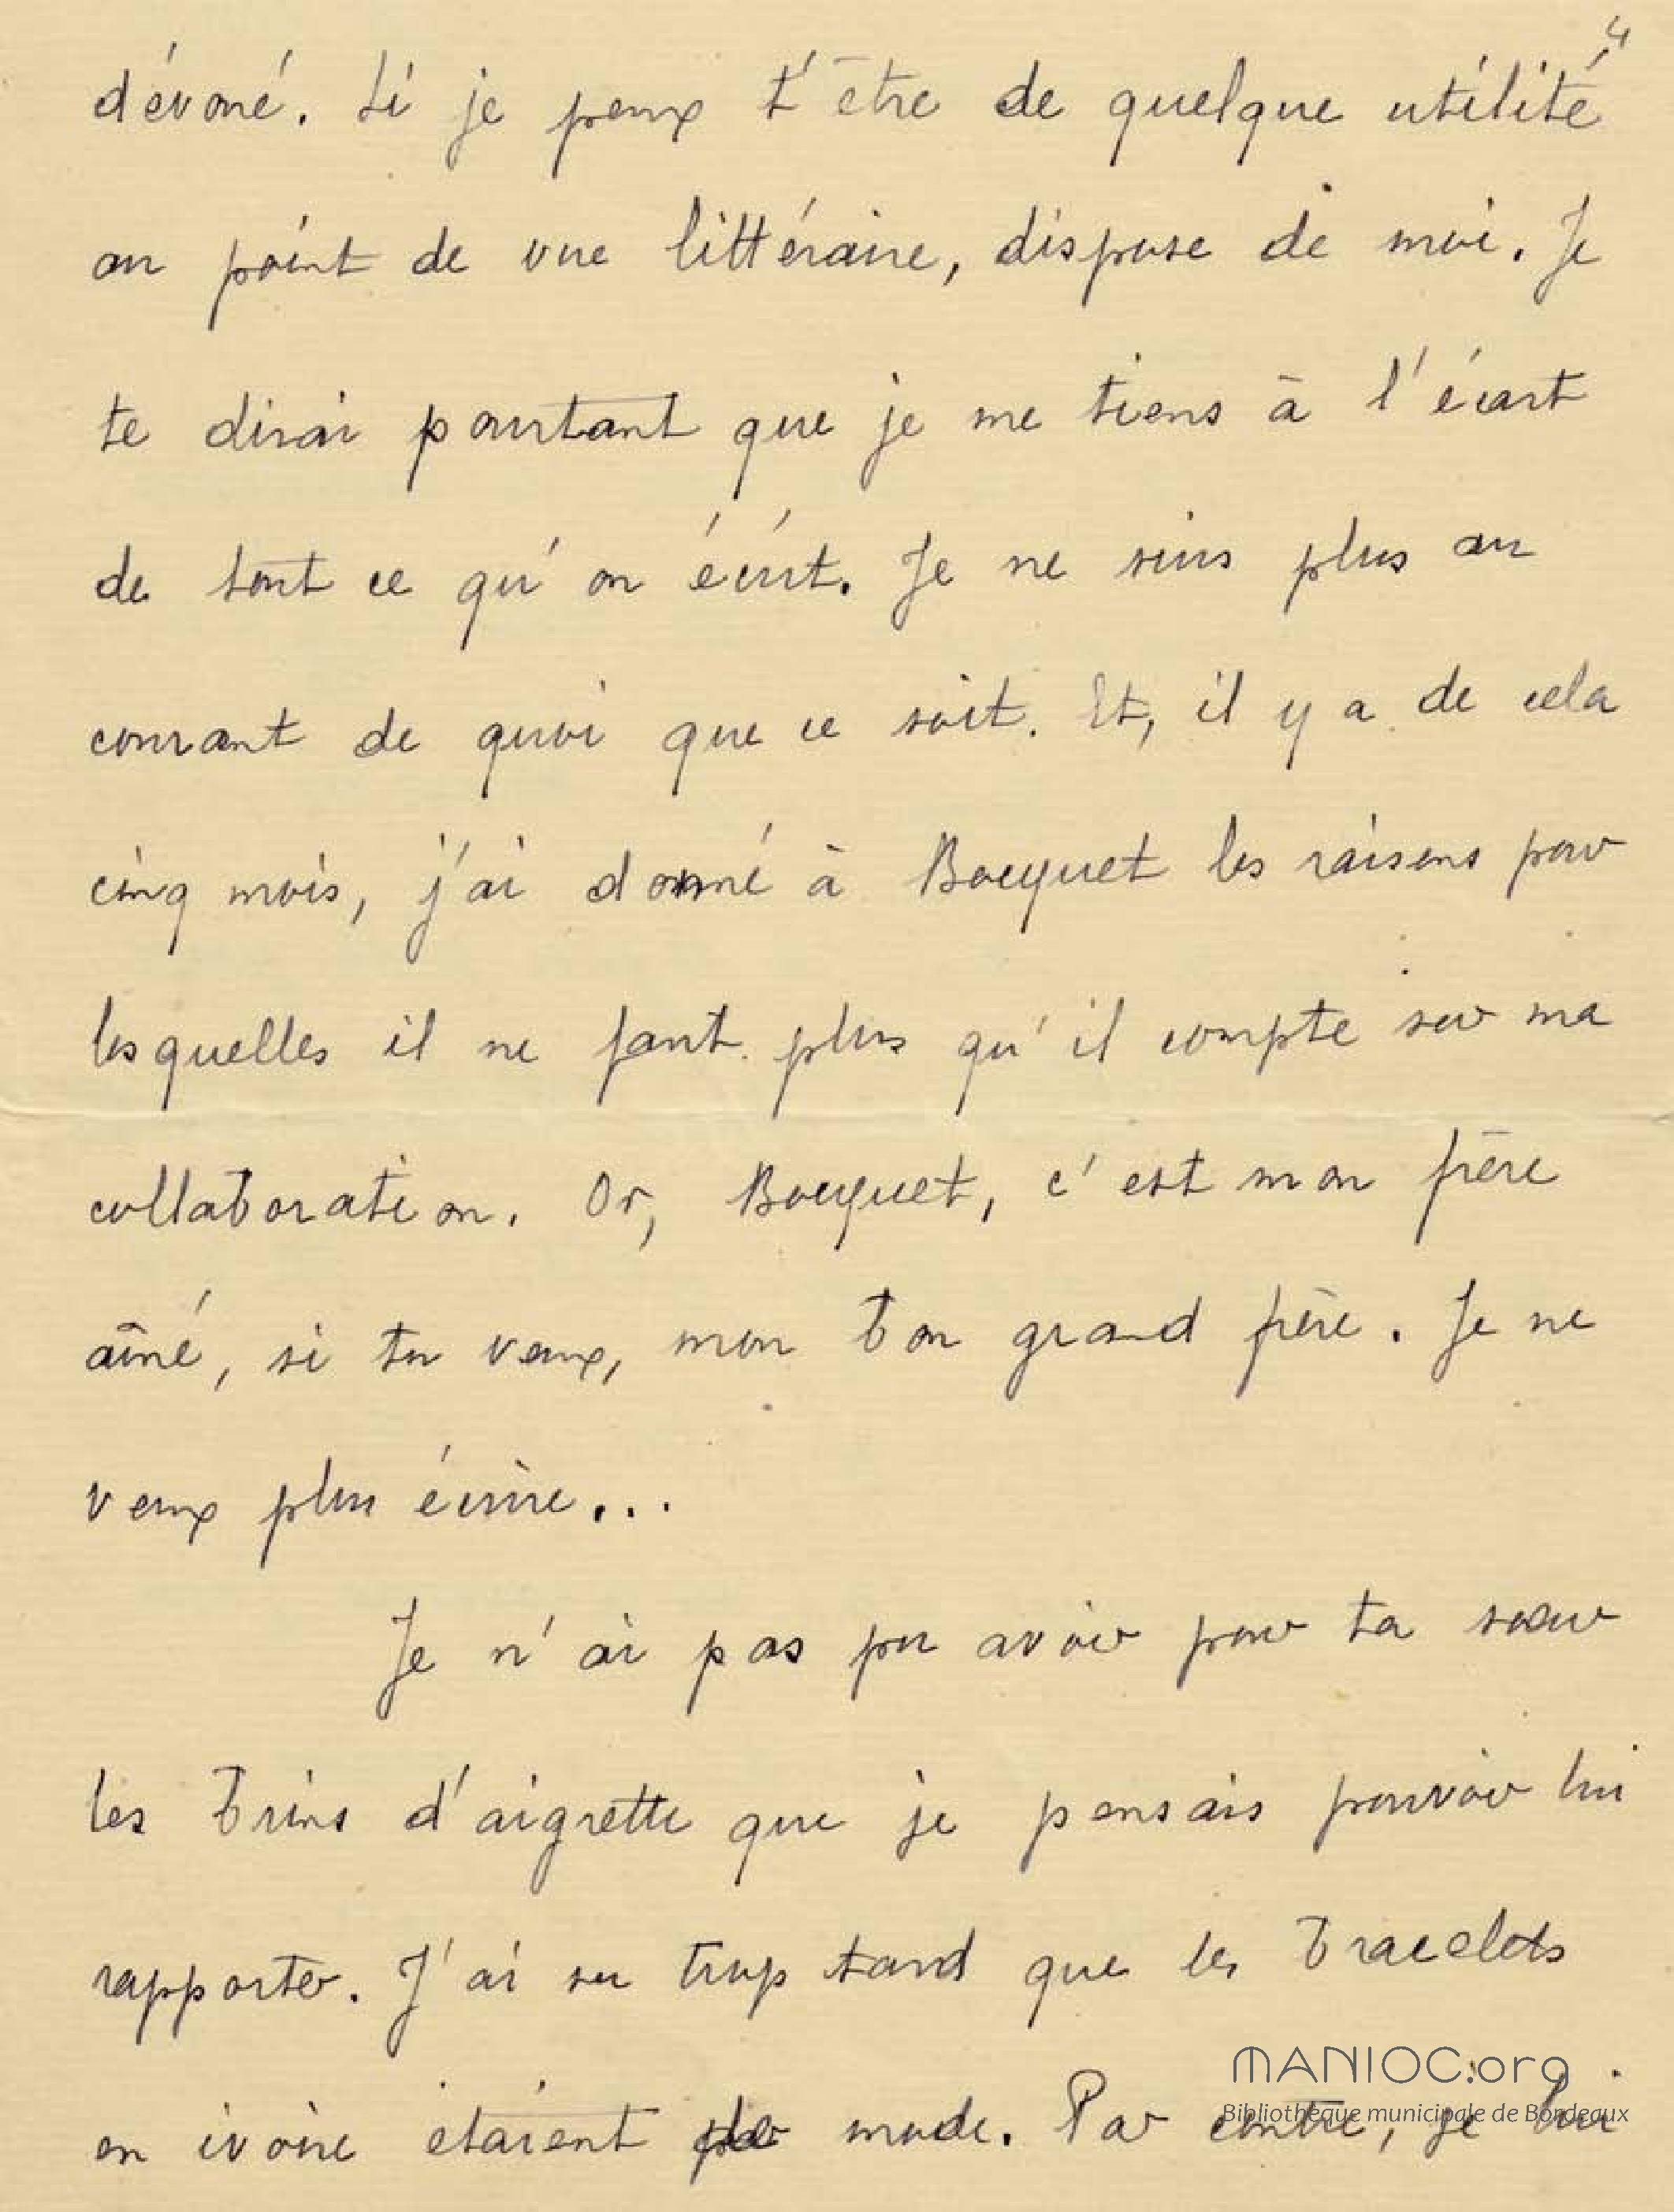 4
dévoué. Si je peux t'être de quelque utilité
au point de vue littéraire, dispose de moi. Je
te dirai pourtant que je me tiens à l'écart
de tout ce qu'on écrit. Je ne suis plus au
courant de quoi que ce soit. Et, il y a de cela
cinq mois, j'ai donné à Bocquet les raisons pour
lesquelles il ne faut plus qu'il compte sur ma
collaboration. Or, Bocquet, c'est mon frère
aîné, si tu veux, mon bon grand frère. Je ne
veux plus écrire...
Je n'ai pas pu avoir pour ta sœur
les brins d'aigrette que je pensais pouvoir lui
rapporter. J'ai su trop tard que les bracelets
en ivoire étaient de mode. Par contre, je lui
MANIOC.org
Bibliothèque municipale de Bordeaux